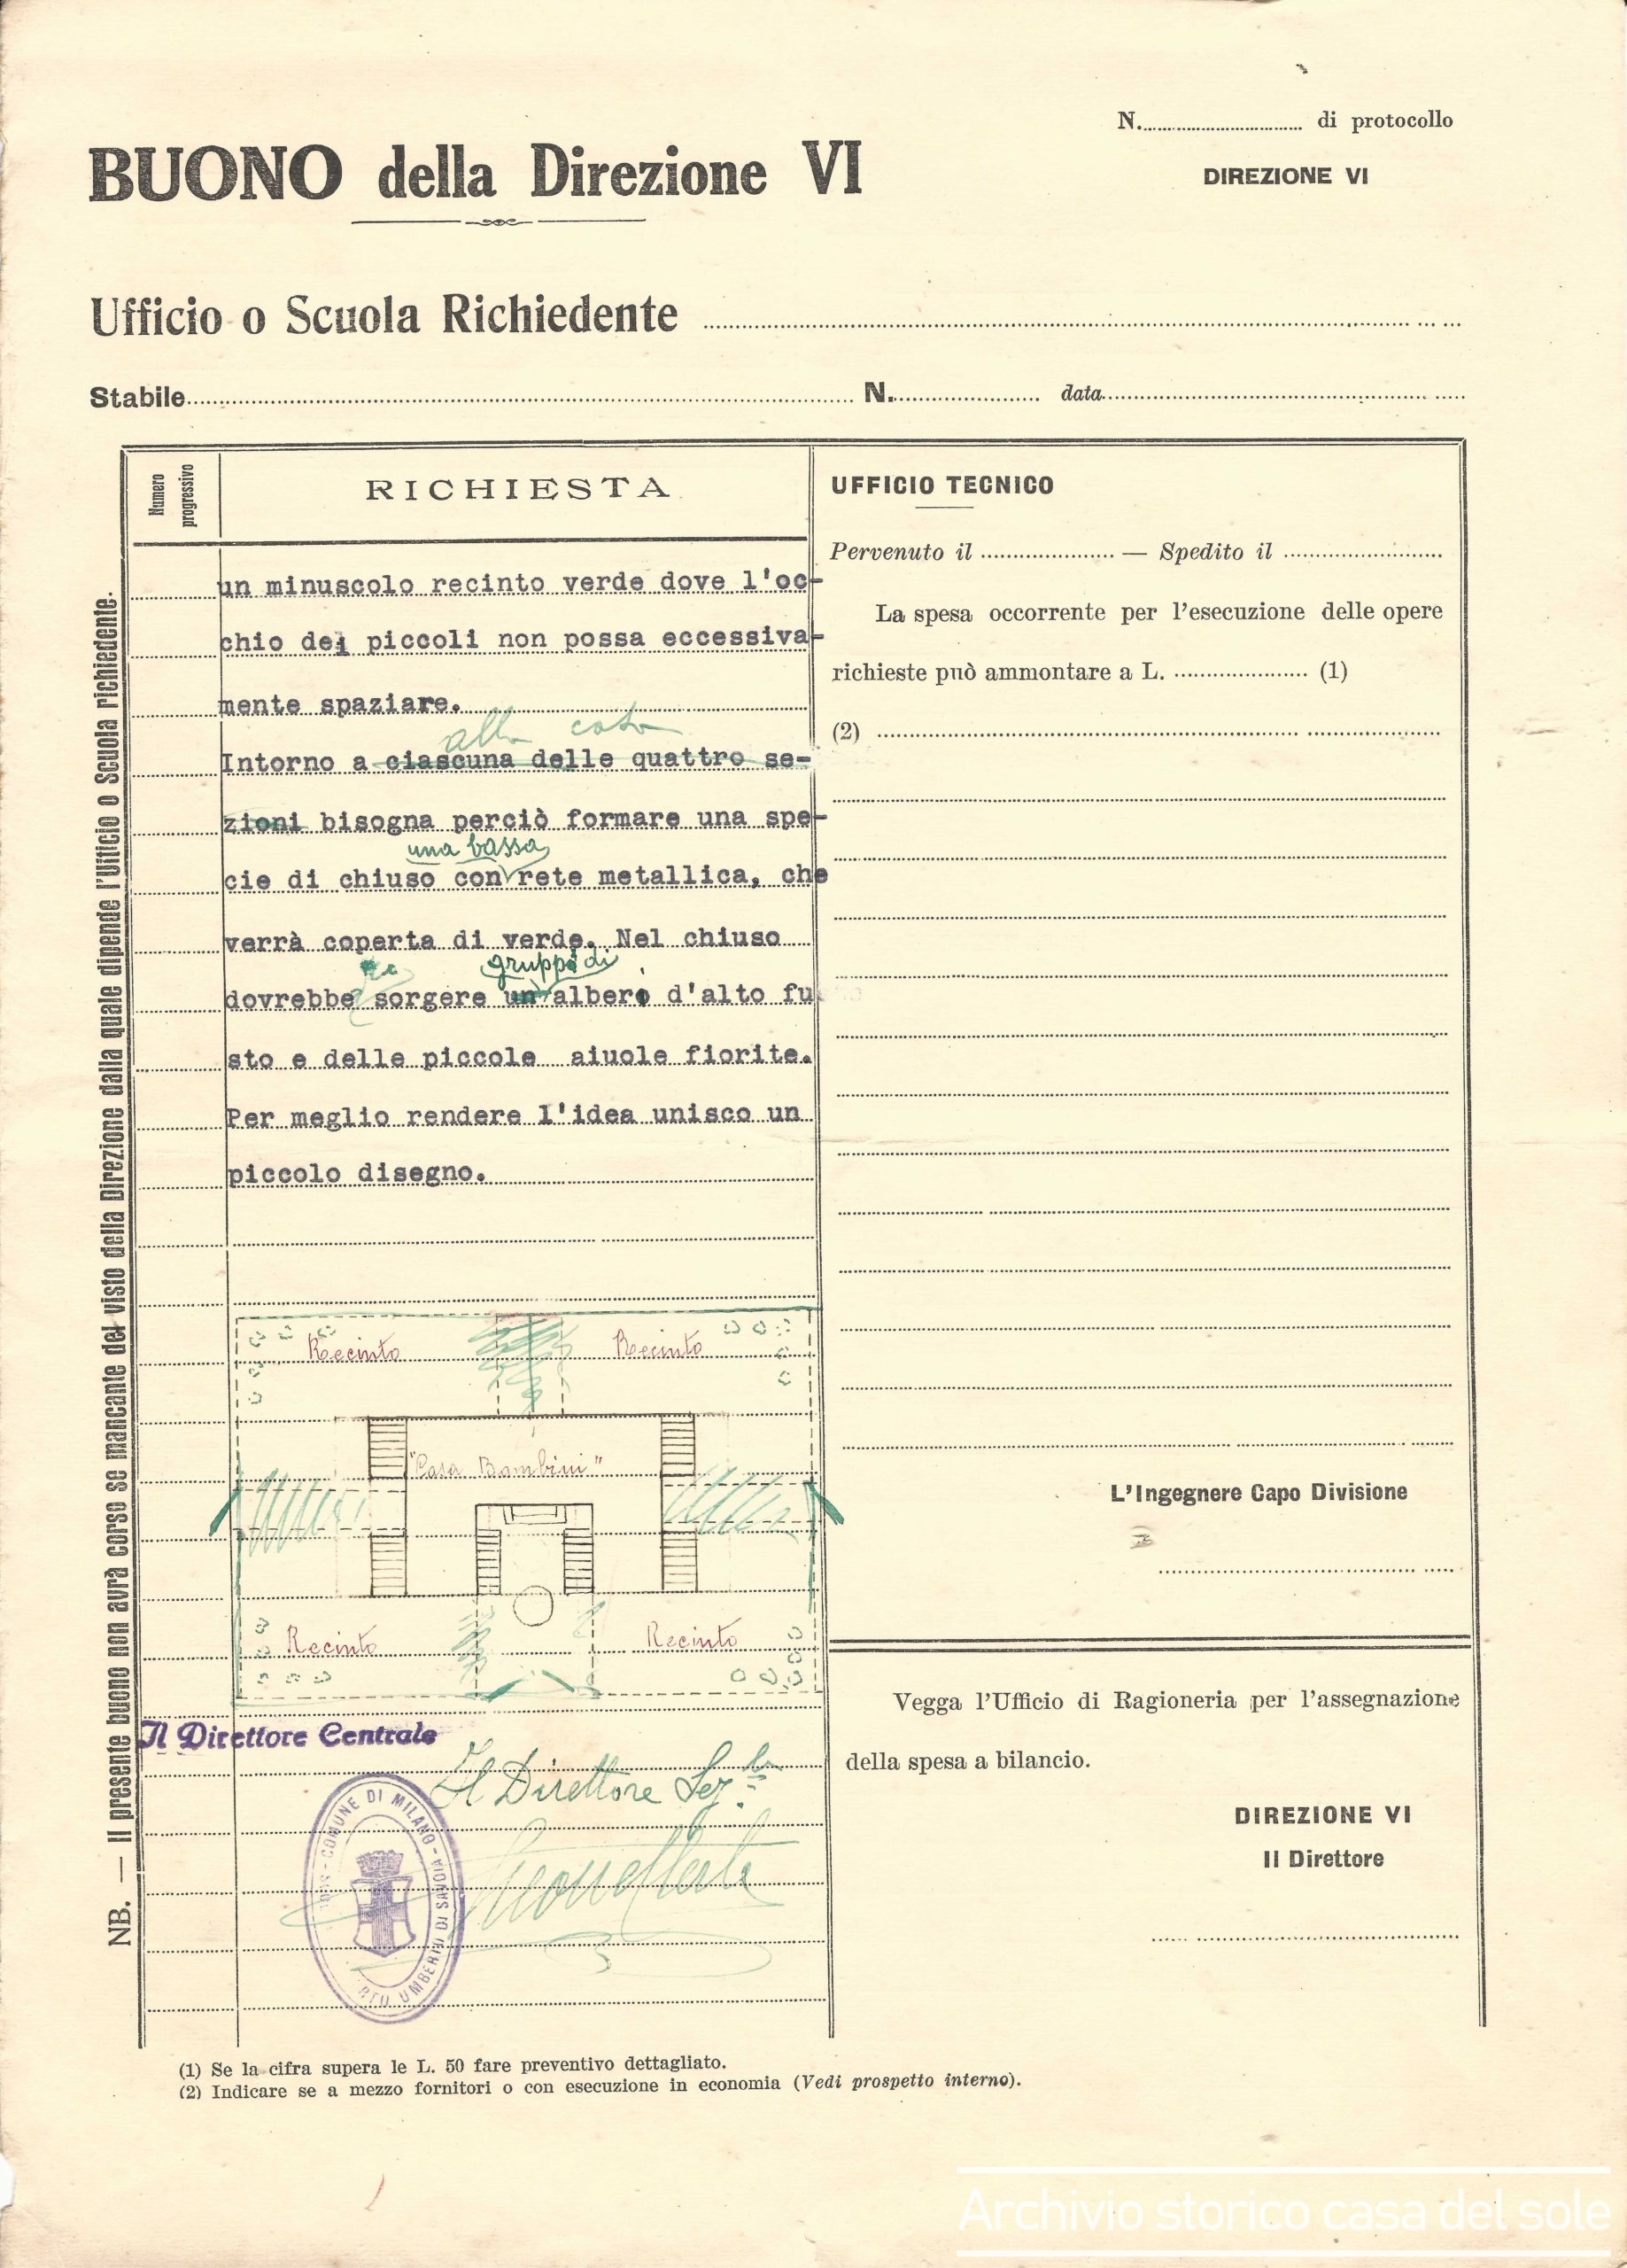 N. di protocollo
BUONO della Direzione VI
DIREZIONE VI
Ufficio o Scuola Richiedente
Stabile N. data
Numero progressivo
RICHIESTA
un minuscolo recinto verde dove l'oc-
chio dei piccoli non possa eccessiva-
mente spaziare.
alla casa
Intorno a ciascuna delle quattro se-
zioni bisogna perciò formare una spe-
una bassa
cie di chiuso con rete metallica, che
verrà coperta di verde. Nel chiuso
gruppi di
dovrebbe sorgere un alberi d'alto fu
sto e delle piccole aiuole fiorite.
Per meglio rendere l'idea unisco un
piccolo disegno.
Recinto Recinto
"Casa Bambini"
Recinto Recinto
Il Direttore Centrale
Il Direttore
COMUNE DI MILANO - UMBERTO DI SAVOIA
UFFICIO TECNICO
Pervenuto il — Spedito il
La spesa occorrente per l'esecuzione delle opere
richieste può ammontare a L. (1)
(2)
L'Ingegnere Capo Divisione
Vegga l'Ufficio di Ragioneria per l'assegnazione
della spesa a bilancio.
DIREZIONE VI
Il Direttore
NB. — Il presente buono non avrà corso se mancante del visto della Direzione dalla quale dipende l'Ufficio o Scuola richiedente.
(1) Se la cifra supera le L. 50 fare preventivo dettagliato.
(2) Indicare se a mezzo fornitori o con esecuzione in economia (Vedi prospetto interno).
Archivio storico casa del sole